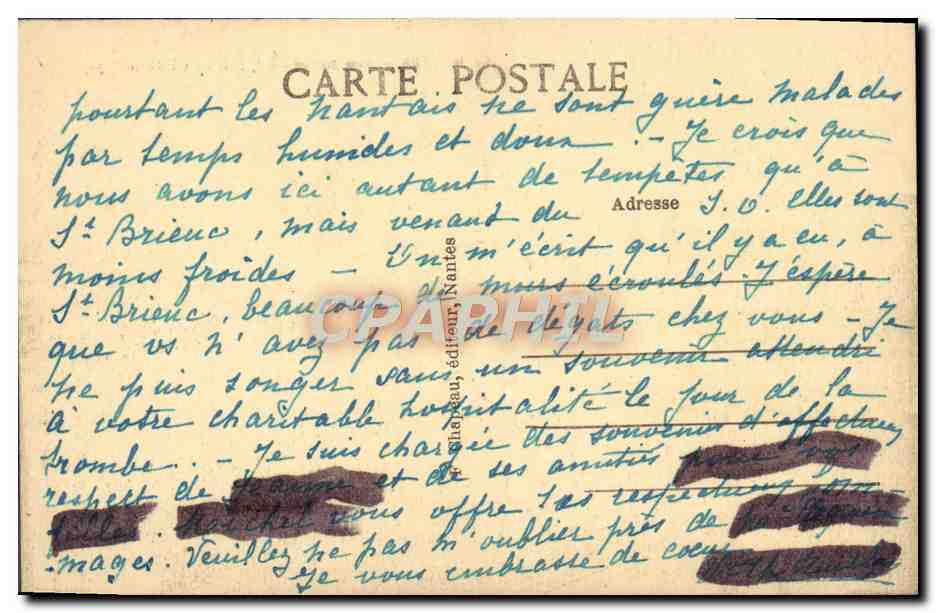 CARTE POSTALE
pourtant les nantais ne sont guère malades
par temps humides et doux. - Je crois que
nous avons ici autant de tempêtes qu'à
Adresse
St Brieuc, mais venant du S.O. Elles sont
moins froides - On m'écrit qu'il y a eu, à
St Brieuc, beaucoup de murs écroulés. J'espère
que vs n'avez pas de dégats chez vous - Je
ne puis songer sans un souvenir attendri
à votre charitable hospitalité le jour de la
trombe. - Je suis chargée des souvenirs d'affectueux
respect de et de ses amitiés
vous offre ses respectueux hom-
mages. Veuillez ne pas m'oublier près de
Je vous embrasse de coeur
F. Chapeau, éditeur, Nantes
CPAPHIL